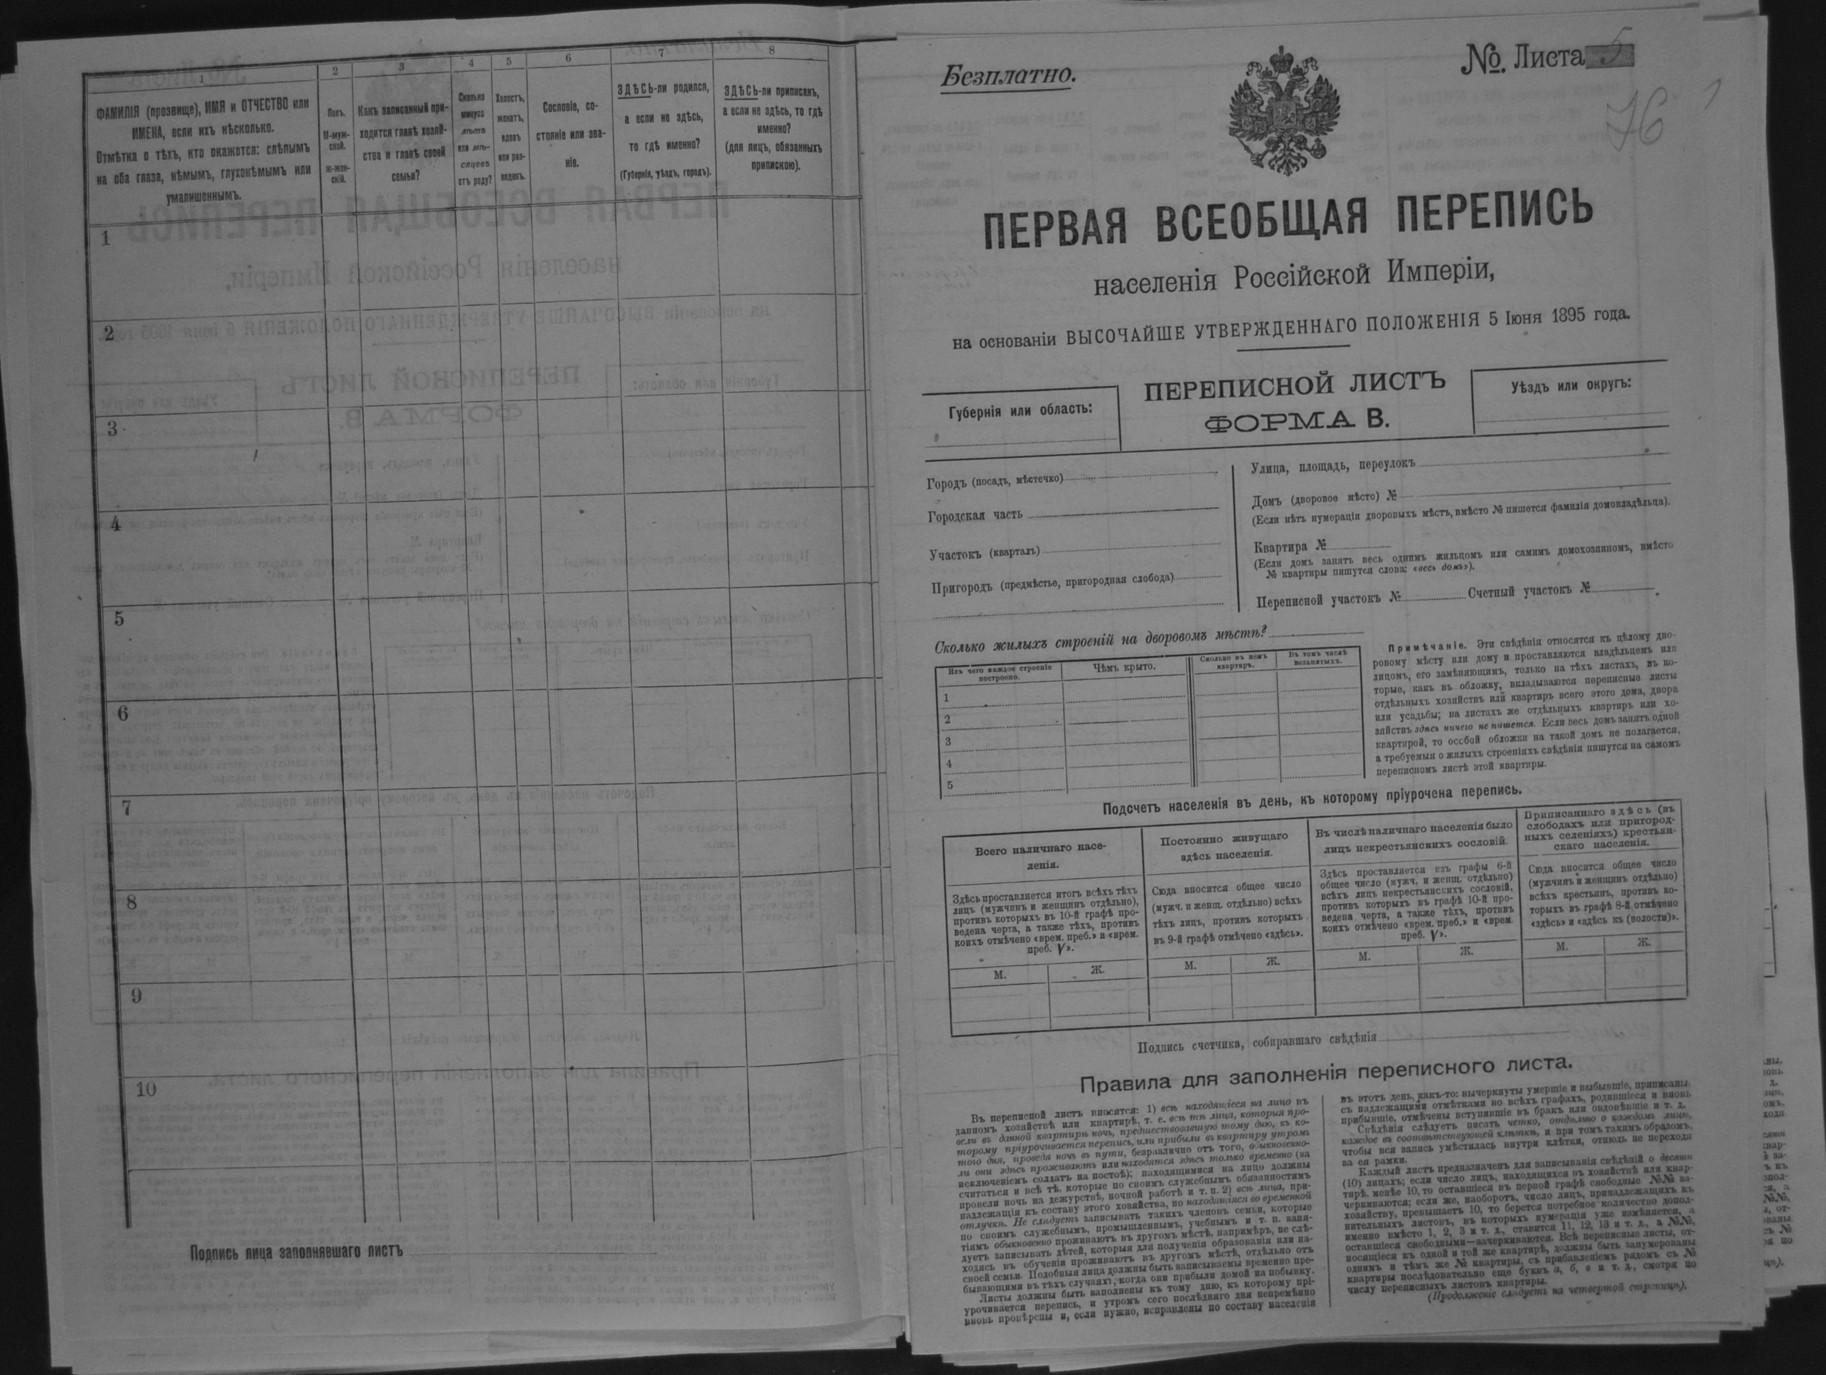 1
ФАМИЛІЯ (прозвище), ИМЯ и ОТЧЕСТВО или
ИМЕНА, если ихъ нѣсколько.
Отмѣтка о тѣхъ, кто окажется: слѣпымъ
на оба глаза, нѣмымъ, глухонѣмымъ или
умалишеннымъ.
2
Полъ.
М-муж-
ской.
ж-жен-
скій.
3
Какъ записанный при-
ходится главѣ хозяй-
ства и главѣ своей
семьи?
4
Сколько
минуло
лѣтъ
или мѣ-
сяцевъ
отъ роду?
5
Холостъ,
женатъ,
вдовъ
или раз-
веденъ.
6
Сословіе, со-
стояніе или зва-
ніе.
7
ЗДѢСЬ-ли родился,
а если не здѣсь,
то гдѣ именно?
(Губернія, уѣздъ, городъ).
8
ЗДѢСЬ-ли приписанъ,
а если не здѣсь, то гдѣ
именно?
(для лицъ, обязанныхъ
припискою).
1
2
3
4
5
6
7
8
9
10
Подпись лица заполнявшаго листъ
Безплатно.
№ Листа 5
76
ПЕРВАЯ ВСЕОБЩАЯ ПЕРЕПИСЬ
населенія Россійской Имперіи,
на основаніи ВЫСОЧАЙШЕ УТВЕРЖДЕННАГО ПОЛОЖЕНІЯ 5 Іюня 1895 года.
Губернія или область:
ПЕРЕПИСНОЙ ЛИСТЪ
ФОРМА В.
Уѣздъ или округъ:
Городъ (посадъ, мѣстечко)
Городская часть
Участокъ (кварталъ)
Пригородъ (предмѣстье, пригородная слобода)
Улица, площадь, переулокъ
Домъ (дворовое мѣсто) №
(Если нѣтъ нумераціи дворовыхъ мѣстъ, вмѣсто № пишется фамилія домовладѣльца).
Квартира №
(Если домъ занятъ весь однимъ жильцомъ или самимъ домохозяиномъ, вмѣсто
№ квартиры пишутся слова: «весь домъ»).
Переписной участокъ № Счетный участокъ №
Сколько жилыхъ строеній на дворовомъ мѣстѣ?
Изъ чего каждое строеніе
построено.
Чѣмъ крыто.
Сколько въ немъ
квартиръ.
Въ томъ числѣ
незанятыхъ.
1
2
3
4
5
Примѣчаніе. Эти свѣдѣнія относятся къ цѣлому дво-
ровому мѣсту или дому и проставляются владѣльцемъ или
лицомъ, его замѣняющимъ, только на тѣхъ листахъ, въ ко-
торые, какъ въ обложку, вкладываются переписные листы
отдѣльныхъ хозяйствъ или квартиръ всего этого дома, двора
или усадьбы; на листахъ же отдѣльныхъ квартиръ или хо-
зяйствъ здѣсь ничего не пишется. Если весь домъ занятъ одной
квартирой, то особой обложки на такой домъ не полагается,
а требуемыя о жилыхъ строеніяхъ свѣдѣнія пишутся на самомъ
переписномъ листѣ этой квартиры.
Подсчетъ населенія въ день, къ которому пріурочена перепись.
Всего наличнаго насе-
ленія.
Здѣсь проставляется итогъ всѣхъ тѣхъ
лицъ (мужчинъ и женщинъ отдѣльно),
противъ которыхъ въ 10-й графѣ про-
ведена черта, а также тѣхъ, противъ
коихъ отмѣчено «врем. преб.» и «врем.
преб. V».
М. Ж.
Постоянно живущаго
здѣсь населенія.
Сюда вносится общее число
(мужч. и женщ. отдѣльно) всѣхъ
тѣхъ лицъ, противъ которыхъ
въ 9-й графѣ отмѣчено «здѣсь».
М. Ж.
Въ числѣ наличнаго населенія было
лицъ некрестьянскихъ сословій.
Здѣсь проставляется изъ графы 6-й
общее число (мужч. и женщ. отдѣльно)
всѣхъ лицъ некрестьянскихъ сословій,
противъ которыхъ въ графѣ 10-й про-
ведена черта, а также тѣхъ, противъ
коихъ отмѣчено «врем. преб.» и «врем.
преб. V».
М. Ж.
Приписаннаго здѣсь (въ
слободахъ или пригород-
ныхъ селеніяхъ) крестьян-
скаго населенія.
Сюда вносится общее число
(мужчинъ и женщинъ отдѣльно)
всѣхъ крестьянъ, противъ ко-
торыхъ въ графѣ 8-й отмѣчено
«здѣсь» и «здѣсь къ (волости)».
М. Ж.
Подпись счетчика, собиравшаго свѣдѣнія
Правила для заполненія переписного листа.
Въ переписной листъ вносятся: 1) всѣ находящіеся на лицо въ
данномъ хозяйствѣ или квартирѣ, т. е. всѣ тѣ лица, которыя про-
вели въ данной квартирѣ ночь, предшествовавшую тому дню, къ ко-
торому пріурочивается перепись, или прибыли въ квартиру утромъ
того дня, проведя ночь въ пути, безразлично отъ того, обыкновенно-
ли они здѣсь проживаютъ или находятся здѣсь только временно (за
исключеніемъ солдатъ на постоѣ); находящимися на лицо должны
считаться и всѣ тѣ, которые по своимъ служебнымъ обязанностямъ
провели ночь на дежурствѣ, ночной работѣ и т. п. 2) всѣ лица, при-
надлежащія къ составу этого хозяйства, но находящіяся во временной
отлучкѣ. Не слѣдуетъ записывать такихъ членовъ семьи, которые
по своимъ служебнымъ, промышленнымъ, учебнымъ и т. п. заня-
тіямъ обыкновенно проживаютъ въ другомъ мѣстѣ, напримѣръ, не слѣ-
дуетъ записывать дѣтей, которыя для полученія образованія или на-
ходясь въ обученіи проживаютъ въ другомъ мѣстѣ, отдѣльно отъ
своей семьи. Подобныя лица должны быть записываемы временно пре-
бывающими въ тѣхъ случаяхъ, когда они прибыли домой на побывку.
Листы должны быть заполнены къ тому дню, къ которому прі-
урочивается перепись, и утромъ сего послѣдняго дня непремѣнно
вновь провѣрены и, если нужно, исправлены по составу населенія
въ этотъ день, какъ-то: вычеркнуты умершіе и выбывшіе, приписаны
съ надлежащими отмѣтками во всѣхъ графахъ, родившіеся и вновь
прибывшіе, отмѣчены вступившіе въ бракъ или овдовѣвшіе и т. д.
Свѣдѣнія слѣдуетъ писать четко, отдѣльно о каждомъ лицѣ,
каждое въ соотвѣтствующей клѣткѣ, и при томъ такимъ образомъ,
чтобы вся запись умѣстилась внутри клѣтки, отнюдь не переходя
за ея рамки.
Каждый листъ предназначенъ для записыванія свѣдѣній о десяти
(10) лицахъ; если число лицъ, находящихся въ хозяйствѣ или квар-
тирѣ, менѣе 10, то оставшіеся въ первой графѣ свободные №№ за-
черкиваются; если же, наоборотъ, число лицъ, принадлежащихъ къ
хозяйству, превышаетъ 10, то берется потребное количество допол-
нительныхъ листовъ, въ которыхъ нумерація уже измѣняется, а
именно вмѣсто 1, 2, 3 и т. д., ставится 11, 12, 13 и т. д., а №№,
оставшіеся свободными—зачеркиваются. Всѣ переписные листы, от-
носящіеся къ одной и той же квартирѣ, должны быть занумерованы
однимъ и тѣмъ же № квартиры, съ прибавленіемъ рядомъ съ №
квартиры послѣдовательно еще буквъ а, б, в и т. д., смотря по
числу переписныхъ листовъ квартиры.
(Продолженіе слѣдуетъ на четвертой страницѣ).